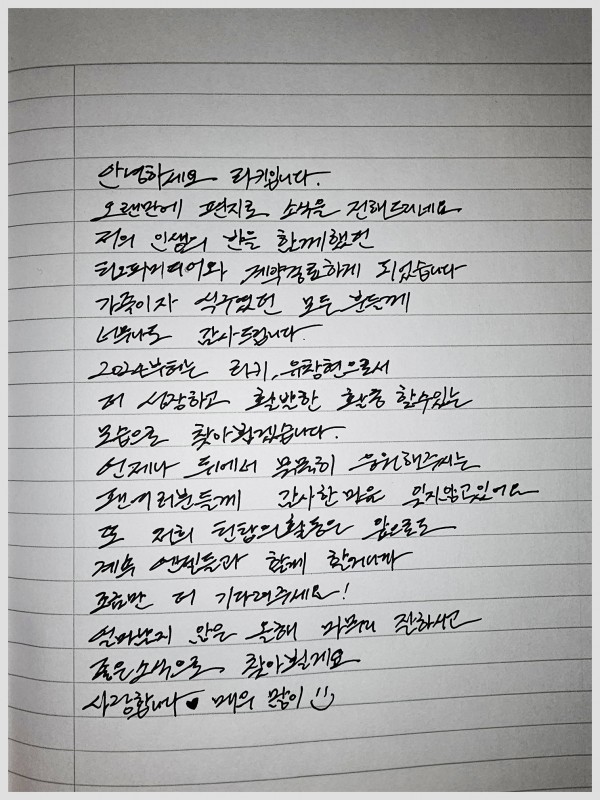 안녕하세요 리키입니다.
오랜만에 편지로 소식을 전해드리네요
저의 인생의 반을 함께했던
티오피미디어와 계약종료하게 되었습니다
가족이자 식구였던 모든 분들께
너무나도 감사드립니다.
2024부터는 리키, 유창현으로서
더 성장하고 활발한 활동 할수있는
모습으로 찾아뵙겠습니다.
언제나 뒤에서 묵묵히 응원해주시는
팬여러분들께 감사한 마음 잊지않고있어요
또 저희 틴탑의 활동은 앞으로도
계속 엔젤들과 함께 할거니까
조금만 더 기다려주세요!
얼마남지 않은 올해 마무리 잘하시고
좋은 소식으로 찾아뵐게요
사랑합니다♥ 매우 많이 :)